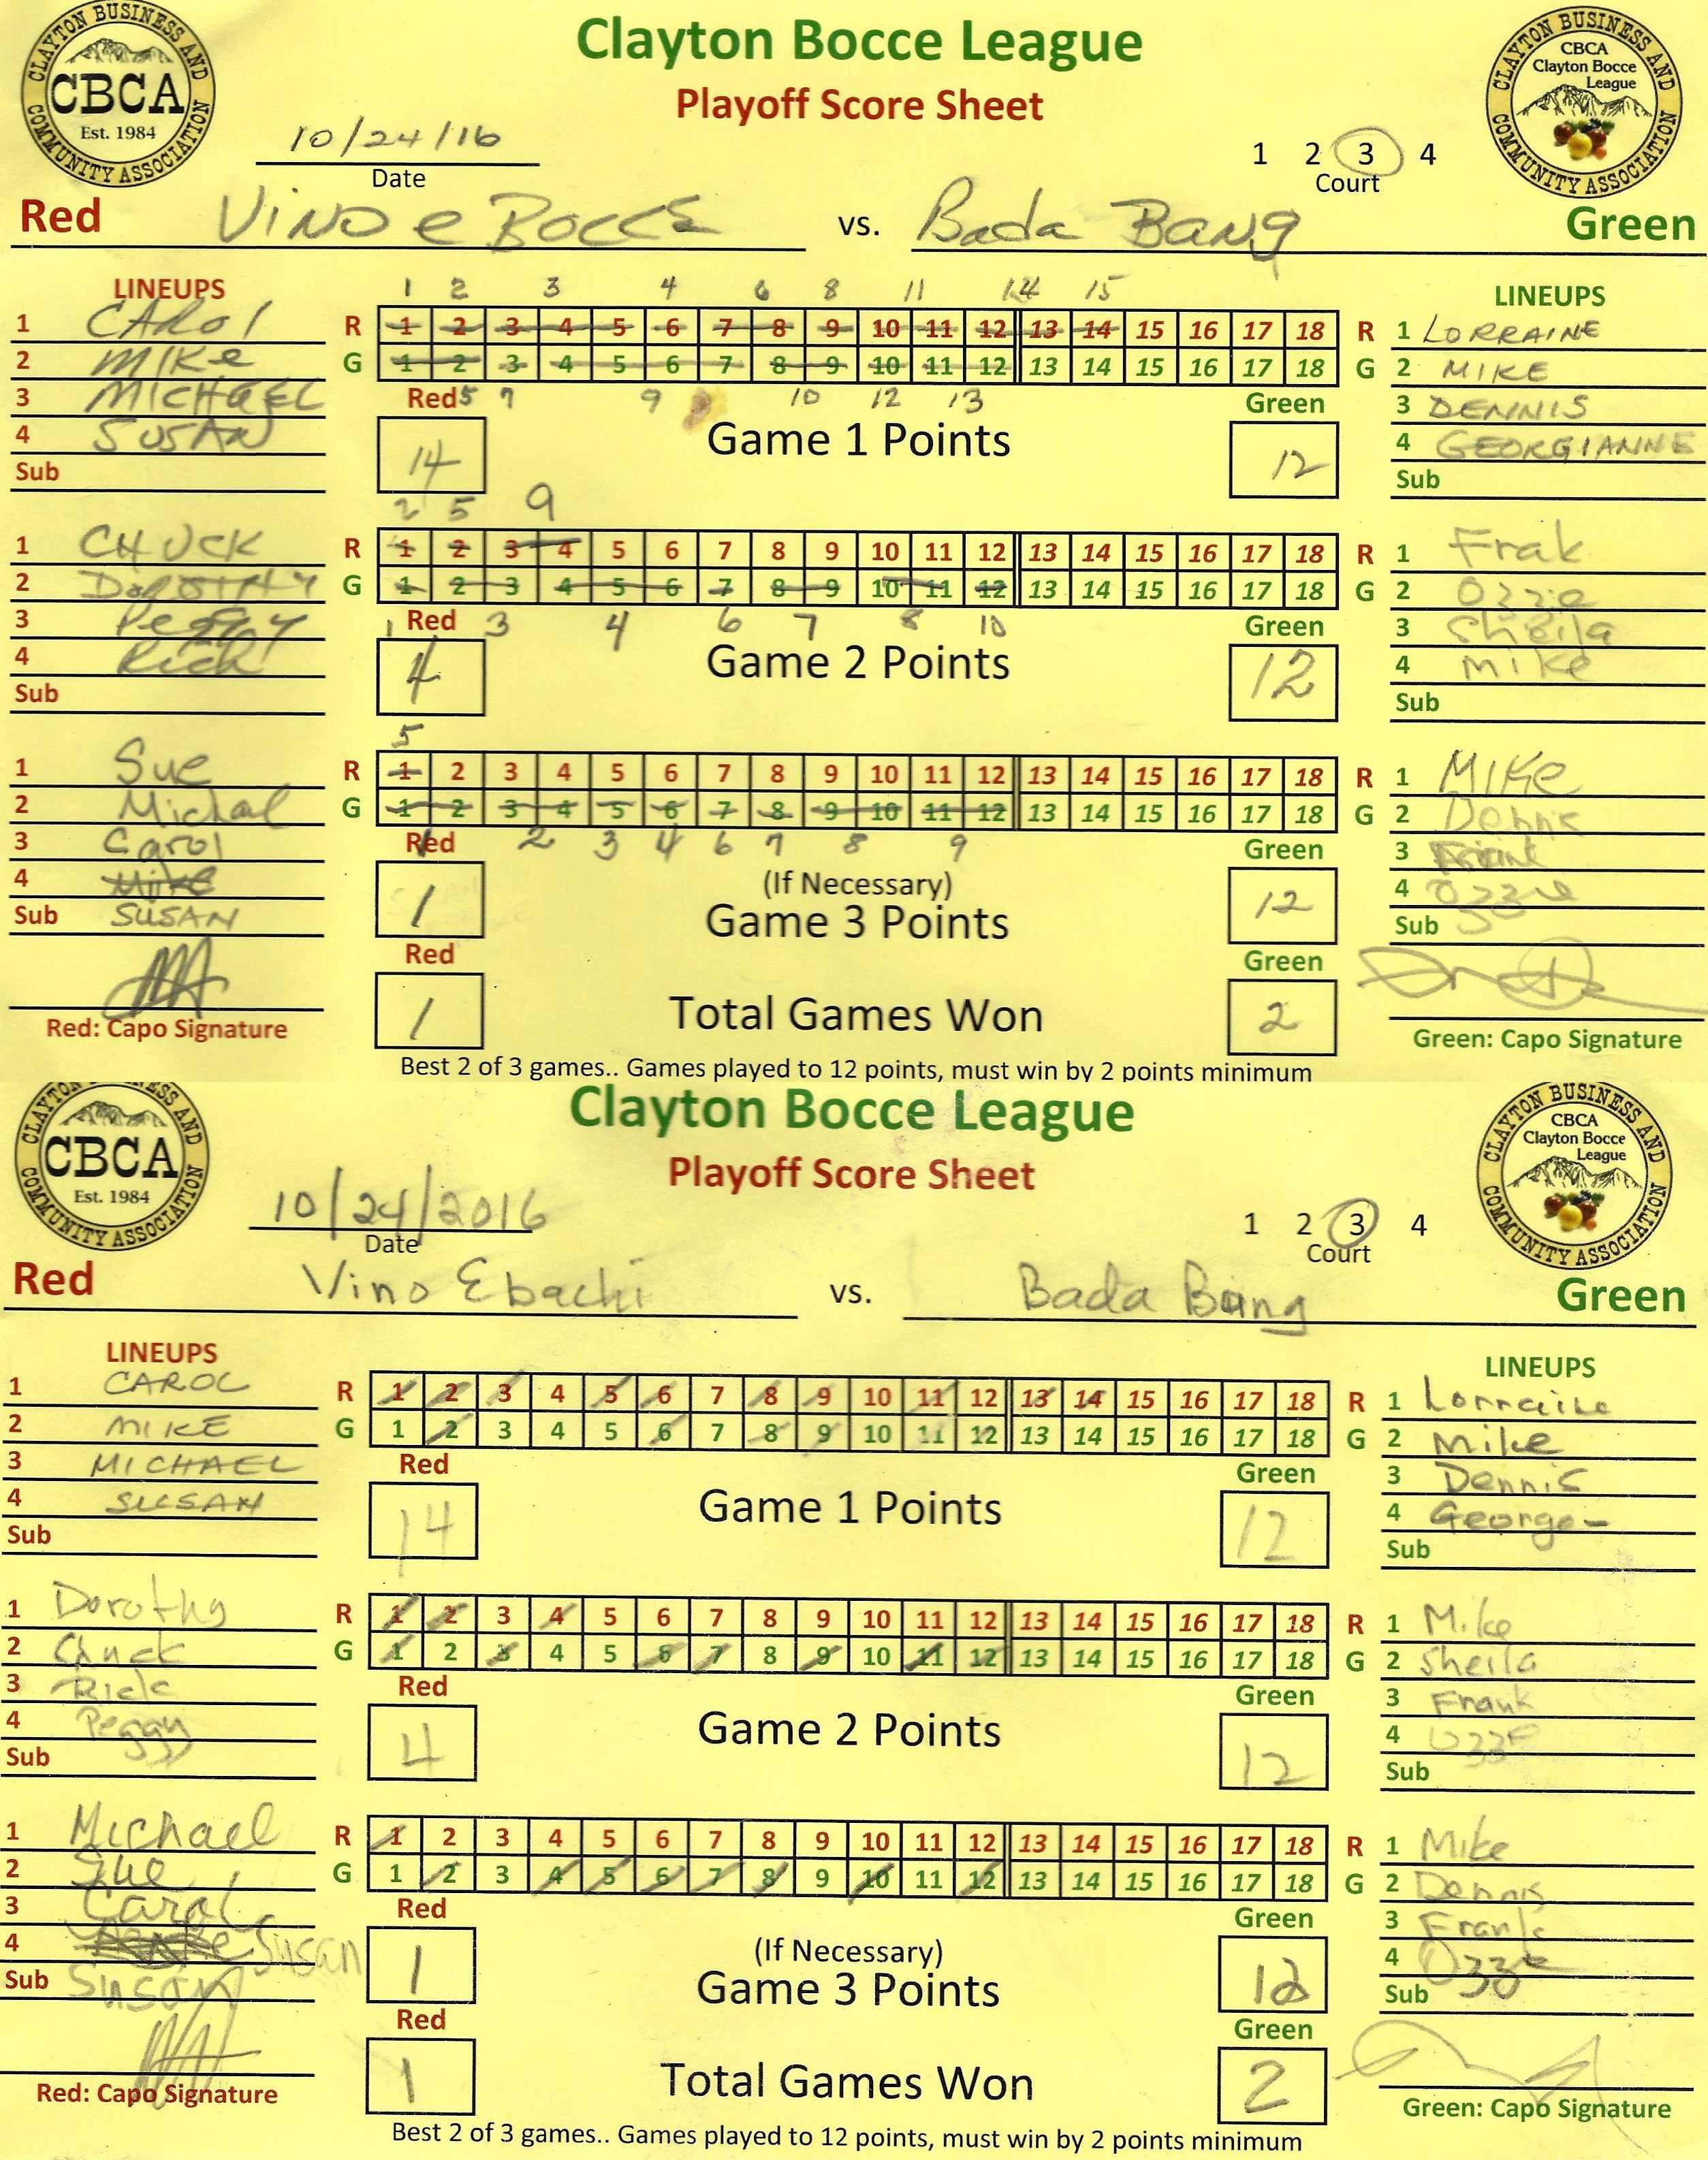 CLAYTON BUSINESS AND COMMUNITY ASSOCIATION
CBCA
Est. 1984
Clayton Bocce League
Playoff Score Sheet
CLAYTON BUSINESS AND COMMUNITY ASSOCIATION
CBCA
Clayton Bocce
League
10/24/16
Date
1 2 3 4
Court
Red Vino e Bocce vs. Bada Bang Green
LINEUPS
1 2 3 4 6 8 11 14 15
LINEUPS
1 CAROL
R 1 2 3 4 5 6 7 8 9 10 11 12 13 14 15 16 17 18 R
1 LORRAINE
2 MIKE
G 1 2 3 4 5 6 7 8 9 10 11 12 13 14 15 16 17 18 G
2 MIKE
3 MICHAEL
Red 5 7 9 10 12 13 Green
3 DENNIS
4 SUSAN
14 Game 1 Points 12
4 GEORGIANNE
Sub
Sub
2 5 9
1 CHUCK
R 1 2 3 4 5 6 7 8 9 10 11 12 13 14 15 16 17 18 R
1 Frak
2 DOROTHY
G 1 2 3 4 5 6 7 8 9 10 11 12 13 14 15 16 17 18 G
2 Ozzie
3 Peggy
1 Red 3 4 6 7 8 10 Green
3 Sheila
4 Rich
4 Game 2 Points 12
4 Mike
Sub
Sub
5
1 Sue
R 1 2 3 4 5 6 7 8 9 10 11 12 13 14 15 16 17 18 R
1 MIKE
2 Michal
G 1 2 3 4 5 6 7 8 9 10 11 12 13 14 15 16 17 18 G
2 Dennis
3 Carol
Red 1 2 3 4 6 7 8 9 Green
3
4 Mike
1 (If Necessary) 12
Game 3 Points
4 Ozzie
Sub SUSAN
Sub
Red Green
1 Total Games Won 2
Red: Capo Signature
Green: Capo Signature
Best 2 of 3 games.. Games played to 12 points, must win by 2 points minimum
CLAYTON BUSINESS AND COMMUNITY ASSOCIATION
CBCA
Est. 1984
Clayton Bocce League
Playoff Score Sheet
CLAYTON BUSINESS AND COMMUNITY ASSOCIATION
CBCA
Clayton Bocce
League
10/24/2016
Date
1 2 3 4
Court
Red Vino Ebachi vs. Bada Bang Green
LINEUPS
LINEUPS
1 CAROL
R 1 2 3 4 5 6 7 8 9 10 11 12 13 14 15 16 17 18 R
1 Lorraine
2 MIKE
G 1 2 3 4 5 6 7 8 9 10 11 12 13 14 15 16 17 18 G
2 Mike
3 MICHAEL
Red Green
3 Dennis
4 SUSAN
14 Game 1 Points 12
4 George-
Sub
Sub
1 Dorothy
R 1 2 3 4 5 6 7 8 9 10 11 12 13 14 15 16 17 18 R
1 Mike
2 Chuck
G 1 2 3 4 5 6 7 8 9 10 11 12 13 14 15 16 17 18 G
2 Sheila
3 Rick
Red Green
3 Frank
4 Peggy
4 Game 2 Points 12
4 Ozze
Sub
Sub
1 Michael
R 1 2 3 4 5 6 7 8 9 10 11 12 13 14 15 16 17 18 R
1 Mike
2 Sue
G 1 2 3 4 5 6 7 8 9 10 11 12 13 14 15 16 17 18 G
2 Dennis
3 Carol
Red Green
3 Frank
4 Susan
1 (If Necessary) 12
Game 3 Points
4 Ozze
Sub Susan
Sub
Red Green
1 Total Games Won 2
Red: Capo Signature
Green: Capo Signature
Best 2 of 3 games.. Games played to 12 points, must win by 2 points minimum